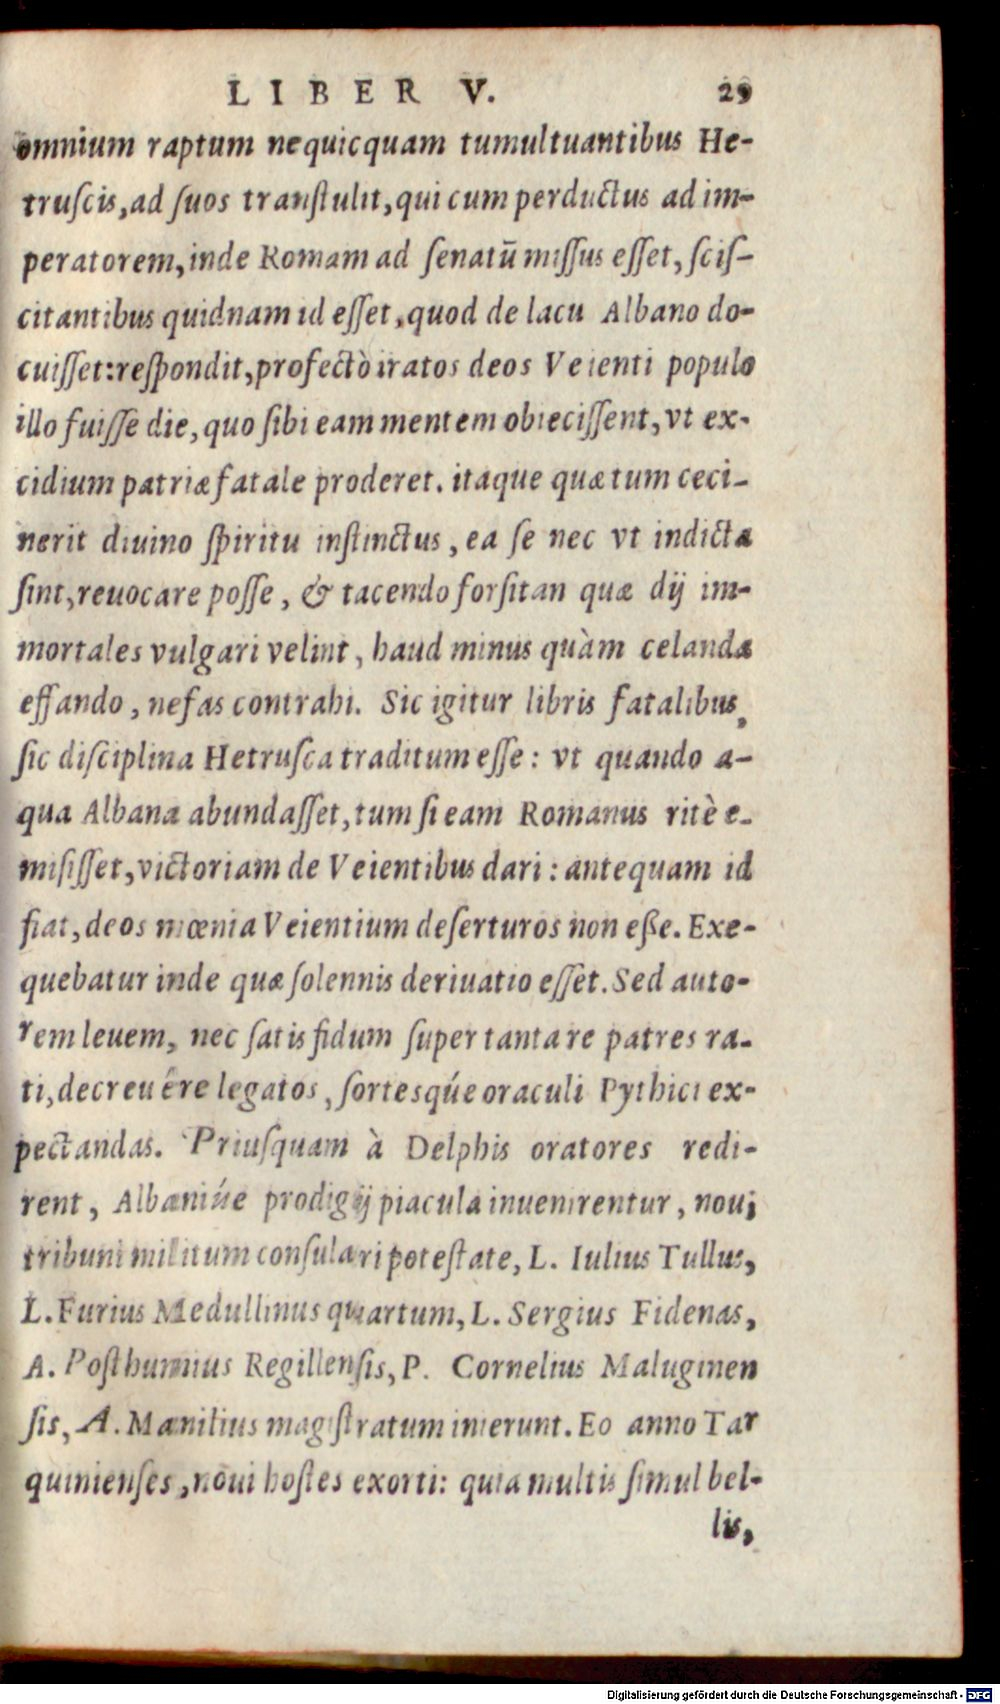 LIBER V. 29
omnium raptum nequicquam tumultuantibus He-
truſcis, ad ſuos tranſtulit, qui cum perductus ad im-
peratorem, inde Romam ad ſenatū miſſus eſſet, ſciſ-
citantibus quidnam id eſſet, quod de lacu Albano do-
cuiſſet: reſpondit, profectò iratos deos Veienti populo
illo fuiſſe die, quo ſibi eam mentem obieciſſent, vt ex-
cidium patriæ fatale proderet. itaque quæ tum ceci-
nerit diuino ſpiritu inſtinctus, ea ſe nec vt indicta
ſint, reuocare poſſe, & tacendo forſitan quæ dij im-
mortales vulgari velint, haud minus quàm celanda
effando, nefas contrahi. Sic igitur libris fatalibus,
ſic diſciplina Hetruſca traditum eſſe: vt quando a-
qua Albana abundaſſet, tum ſi eam Romanus ritè e-
miſiſſet, victoriam de Veientibus dari: antequam id
fiat, deos mœnia Veientium deſerturos non eße. Exe-
quebatur inde quæ ſolennis deriuatio eſſet. Sed auto-
rem leuem, nec ſatis fidum ſuper tanta re patres ra-
ti, decreuêre legatos, ſortesq́ue oraculi Pythici ex-
pectandas. Priuſquam à Delphis oratores redi-
rent, Albaniúe prodigij piacula inuenirentur, noui
tribuni militum conſulari poteſtate, L. Iulius Tullus,
L. Furius Medullinus quartum, L. Sergius Fidenas,
A. Poſthumius Regillenſis, P. Cornelius Maluginen
ſis, A. Manilius magiſtratum inierunt. Eo anno Tar
quinienſes, noui hoſtes exorti: quia multis ſimul bel-
lis,
Digitalisierung gefördert durch die Deutsche Forschungsgemeinschaft - DFG